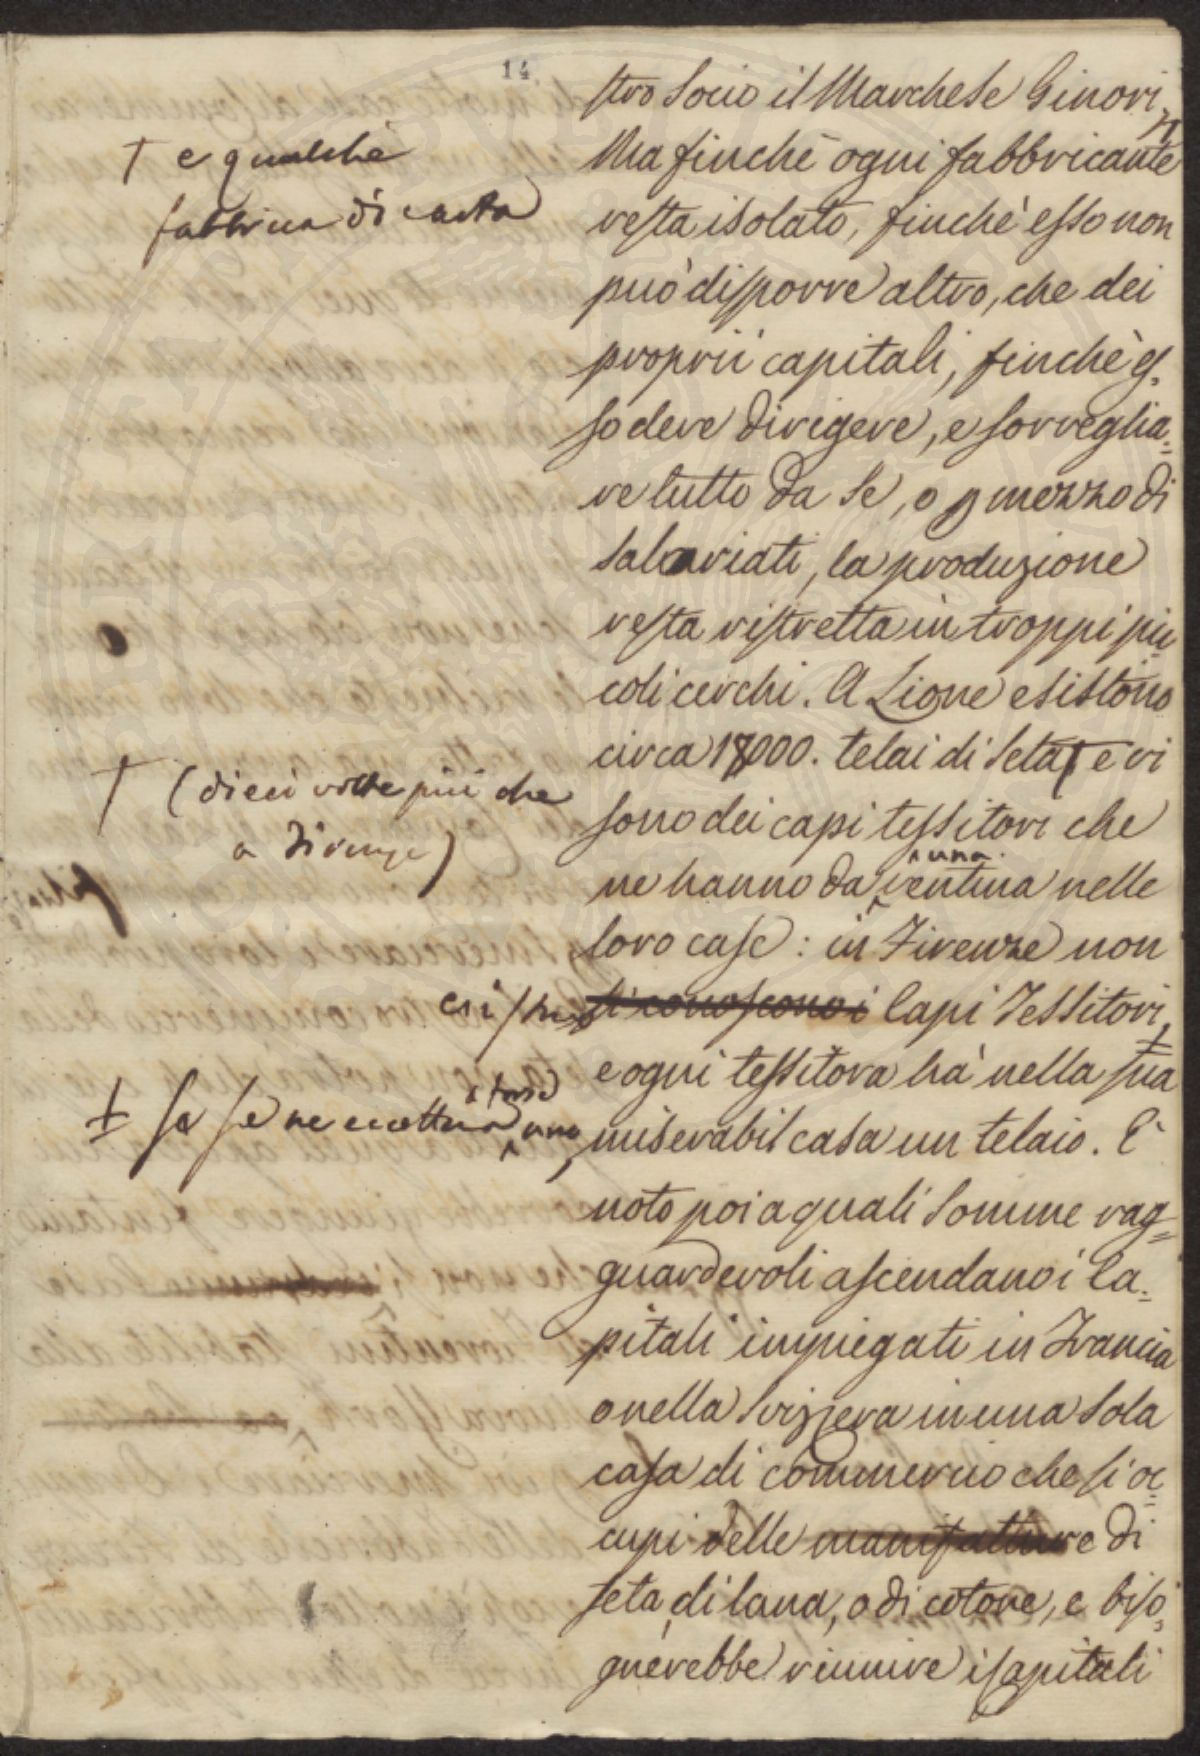 14.
stro Socio il Marchese Ginori,
† e qualche
fabbrica di carta
Ma finchè ogni fabbricante
resta isolato, finchè esso non
può disporre altro, che dei
proprii capitali, finchè es=
so deve dirigere, e sorveglia=
re tutto da se, o p mezzo di
salariati, la produzione
resta ristretta in troppi pic
coli cerchi. A Lione esistono
circa 17000. telai di seta † e vi
† (dieci volte più che
a Firenze)
sono dei capi tessitori che
una
ne hanno da ventina nelle
loro case: in Firenze non
esistono si conoscono i Capi Tessitori,
e ogni tessitora hà nella sua
± se se ne eccettua forse uno,
miserabil casa un telaio. È
noto poi a quali somme rag=
guardevoli ascendano i Ca=
pitali impiegati in Francia
o nella Svizzera in una sola
casa di commercio che si oc=
cupi delle manifatture di
seta, di lana, o di cotone, e biso=
gnerebbe riunire i capitali